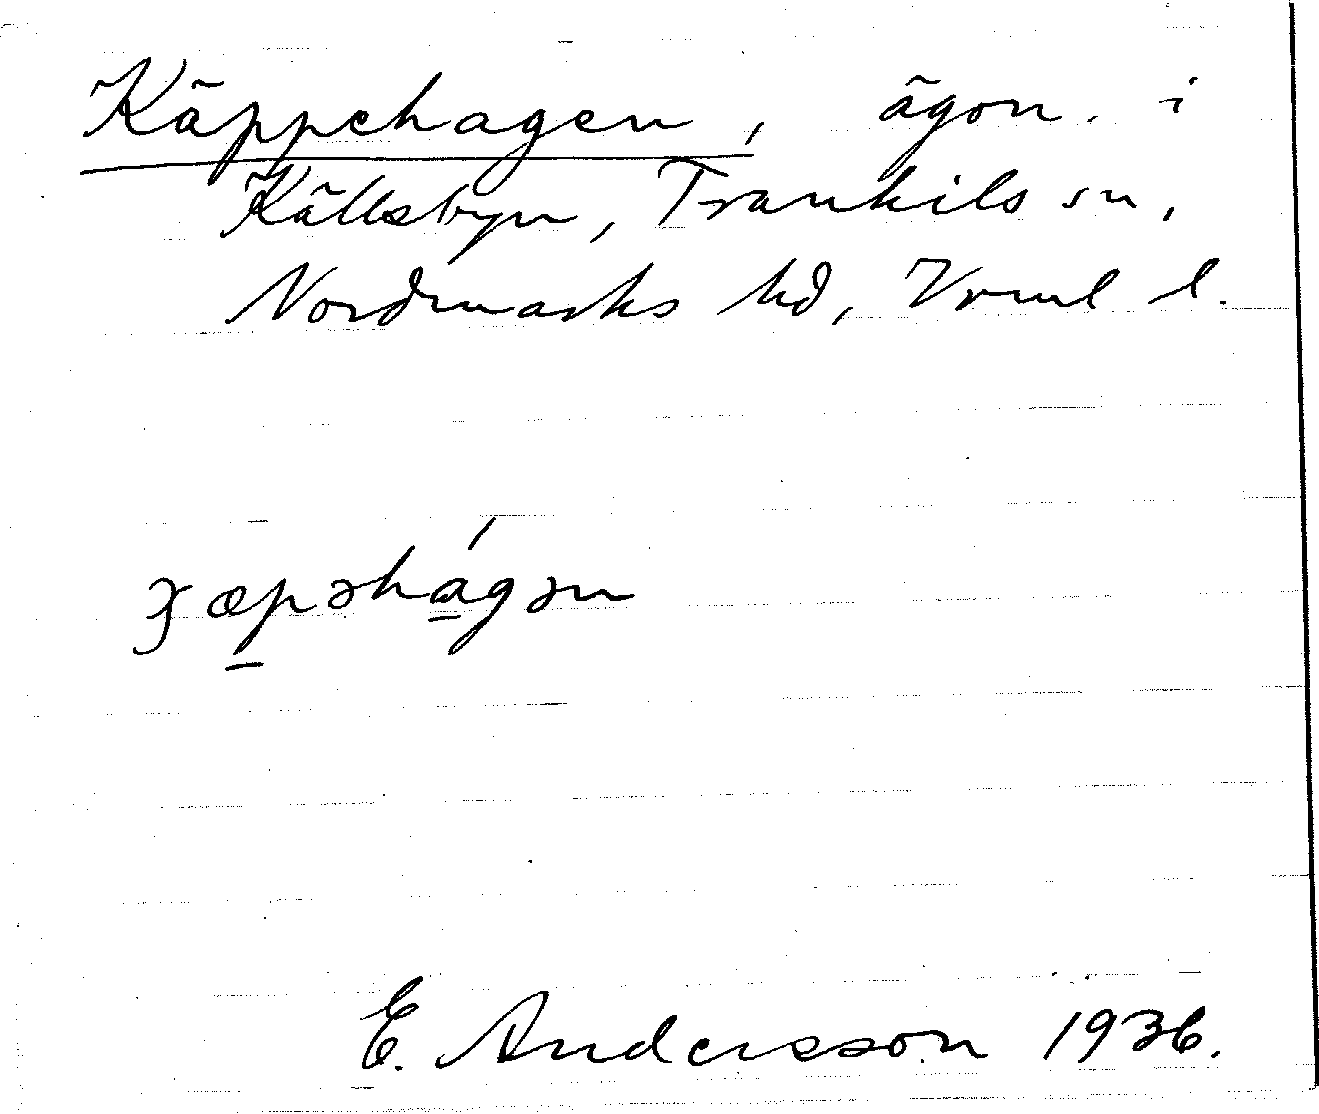 Käppehagen, ägon. i
Källsbyn, Trankils sn,
Nordmarks hd, Vrml l.
ɤæp̱əhá̱gən
E. Andersson 1936.